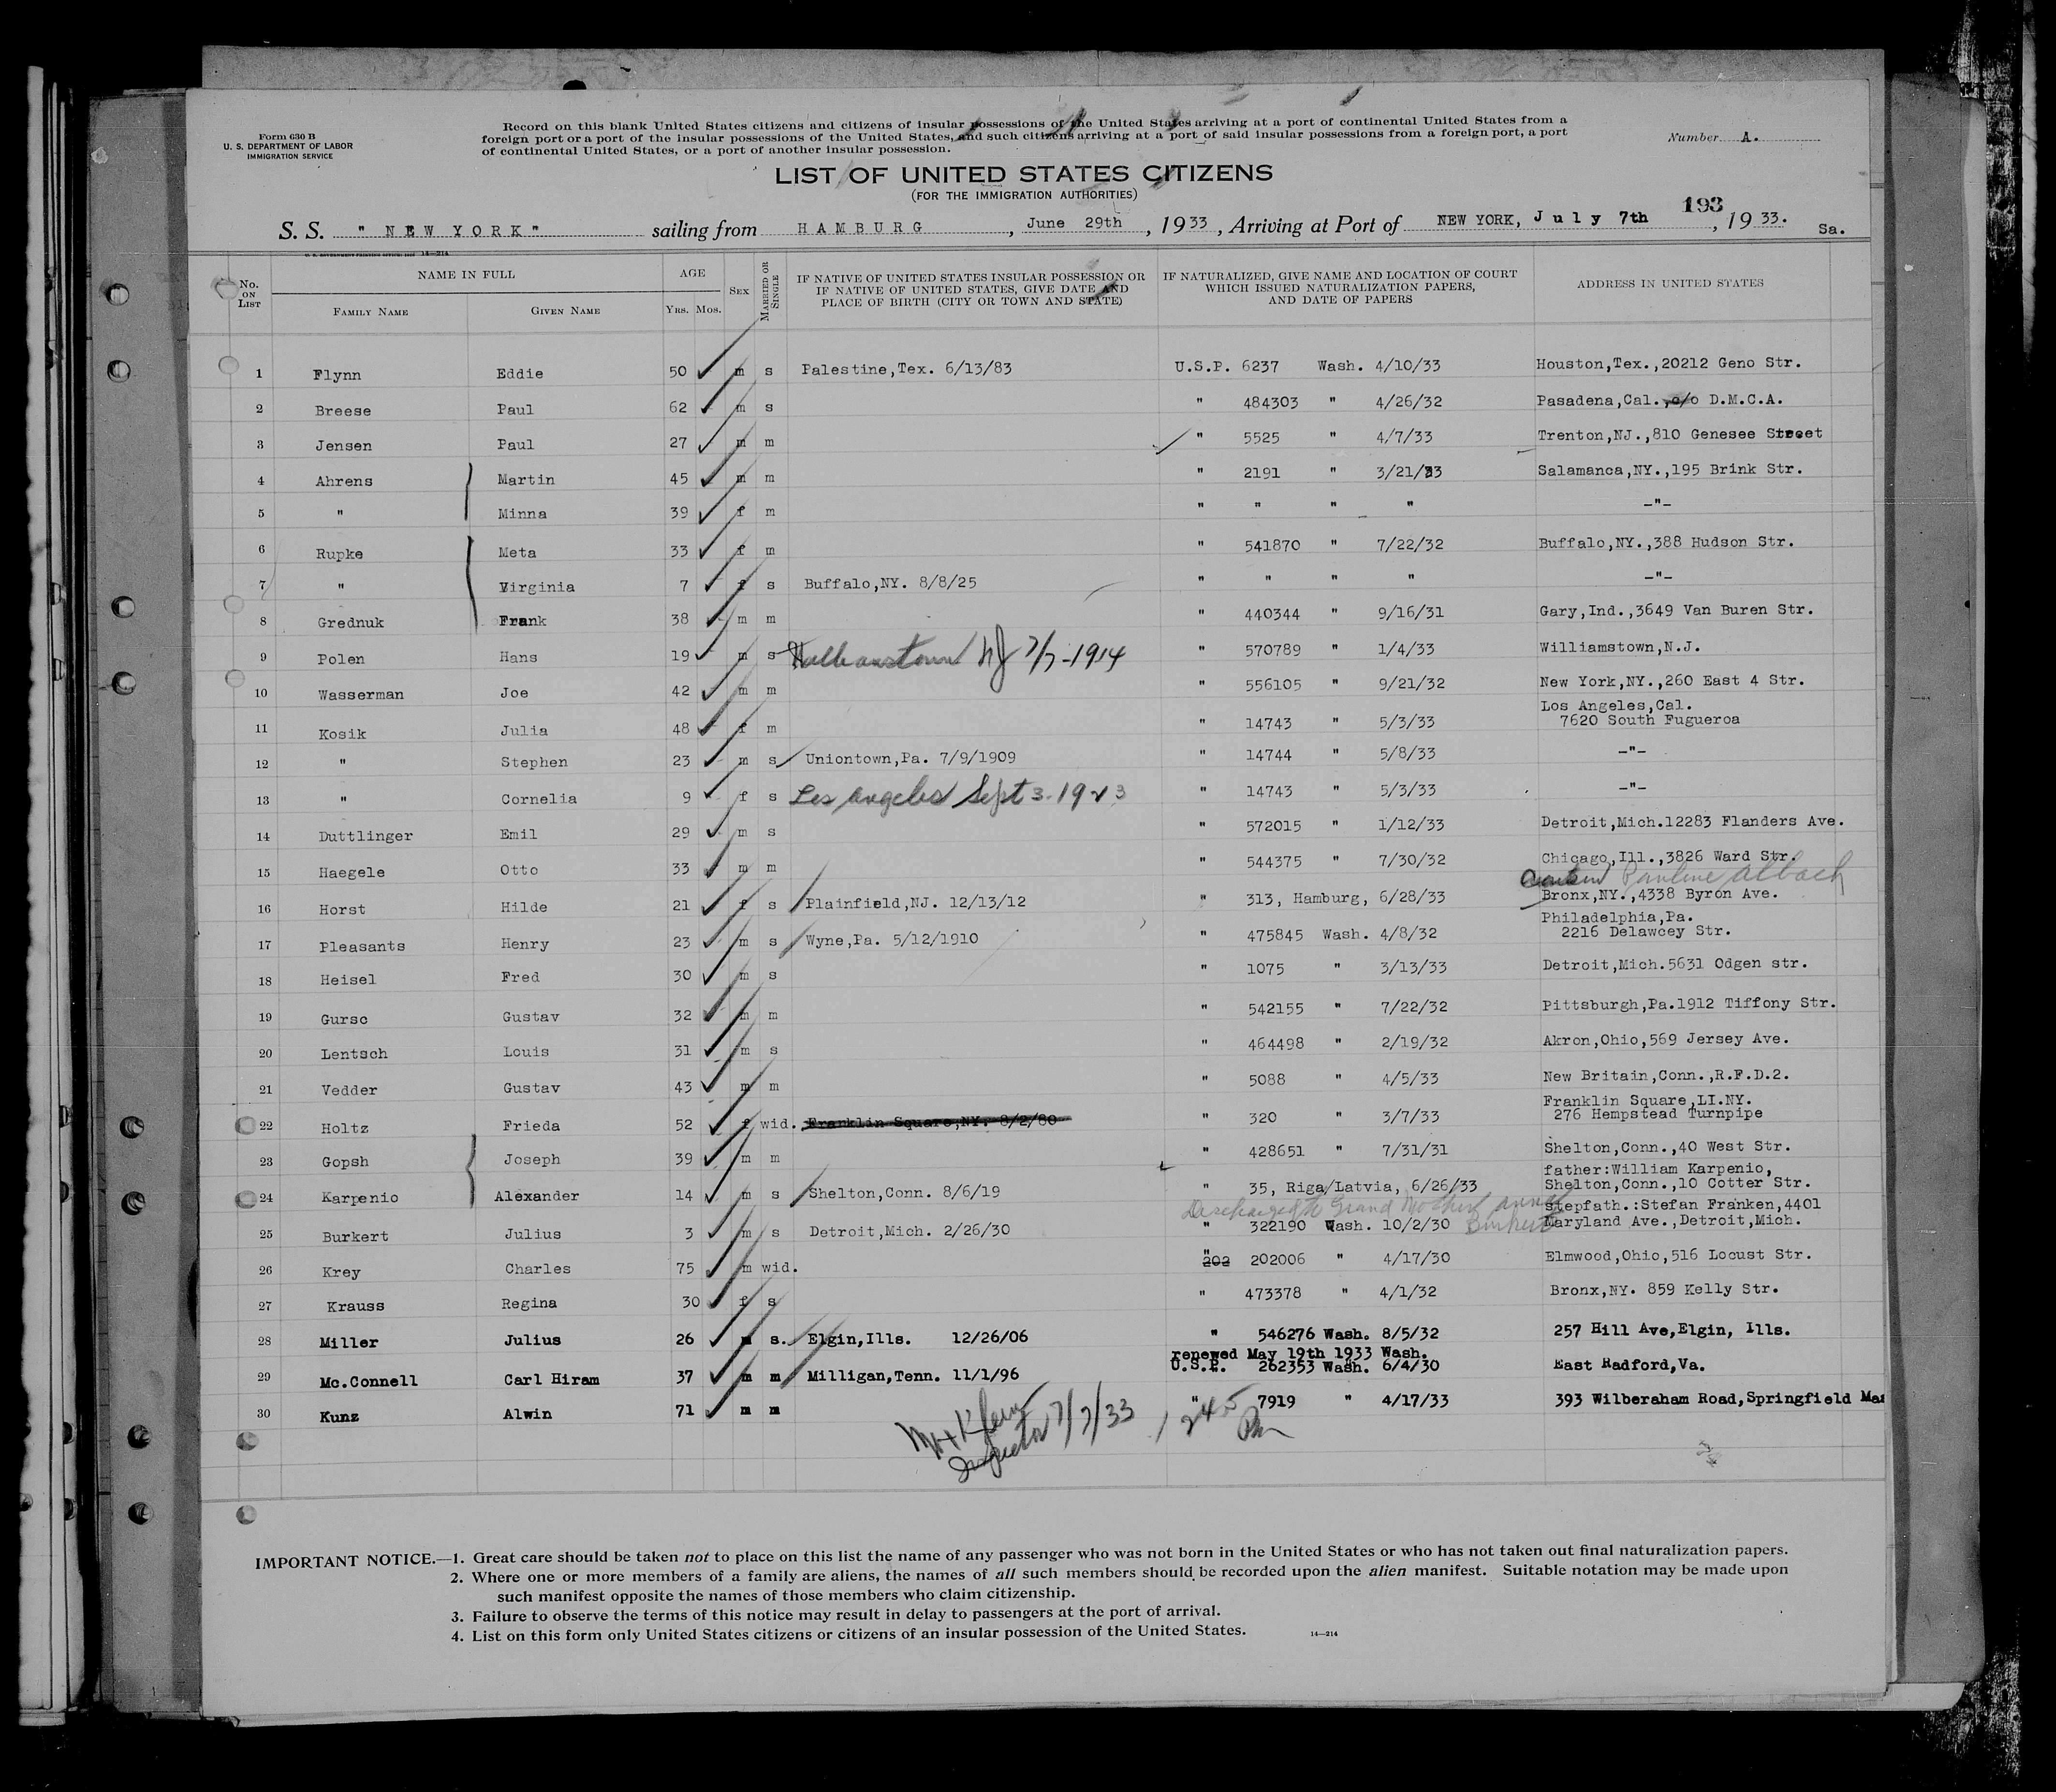 Form 630 B
U. S. DEPARTMENT OF LABOR
IMMIGRATION SERVICE
Record on this blank United States citizens and citizens of insular possessions of the United States arriving at a port of continental United States from a
foreign port or a port of the insular possessions of the United States, and such citizens arriving at a port of said insular possessions from a foreign port, a port
of continental United States, or a port of another insular possession.
Number A.
LIST OF UNITED STATES CITIZENS
(FOR THE IMMIGRATION AUTHORITIES)
193
S. S. " NEW YORK" sailing from HAMBURG, June 29th, 1933, Arriving at Port of NEW YORK, July 7th, 1933. Sa.
No. ON LIST NAME IN FULL FAMILY NAME GIVEN NAME AGE YRS. MOS. SEX MARRIED OR SINGLE IF NATIVE OF UNITED STATES INSULAR POSSESSION OR IF NATIVE OF UNITED STATES, GIVE DATE AND PLACE OF BIRTH (CITY OR TOWN AND STATE) IF NATURALIZED, GIVE NAME AND LOCATION OF COURT WHICH ISSUED NATURALIZATION PAPERS, AND DATE OF PAPERS ADDRESS IN UNITED STATES
1 Flynn Eddie 50 m s Palestine,Tex. 6/13/83 U.S.P. 6237 Wash. 4/10/33 Houston,Tex.,20212 Geno Str.
2 Breese Paul 62 m s " 484303 " 4/26/32 Pasadena,Cal.,c/o D.M.C.A.
3 Jensen Paul 27 m m " 5525 " 4/7/33 Trenton,NJ.,810 Genesee Street
4 Ahrens Martin 45 m m " 2191 " 3/21/33 Salamanca,NY.,195 Brink Str.
5 " Minna 39 f m " " " " -"-
6 Rupke Meta 33 f m " 541870 " 7/22/32 Buffalo,NY.,388 Hudson Str.
7 " Virginia 7 f s Buffalo,NY. 8/8/25 " " " " -"-
8 Grednuk Frank 38 m m " 440344 " 9/16/31 Gary,Ind.,3649 Van Buren Str.
9 Polen Hans 19 m s NJ 7/7-1914 " 570789 " 1/4/33 Williamstown,N.J.
10 Wasserman Joe 42 m m " 556105 " 9/21/32 New York,NY.,260 East 4 Str.
11 Kosik Julia 48 f m " 14743 " 5/3/33 Los Angeles,Cal.
7620 South Fugueroa
12 " Stephen 23 m s Uniontown,Pa. 7/9/1909 " 14744 " 5/8/33 -"-
13 " Cornelia 9 f s Los Angeles Sept 3-1923 " 14743 " 5/3/33 -"-
14 Duttlinger Emil 29 m s " 572015 " 1/12/33 Detroit,Mich.12283 Flanders Ave.
15 Haegele Otto 33 m m " 544375 " 7/30/32 Chicago,Ill.,3826 Ward Str.
Pauline Albach
16 Horst Hilde 21 f s Plainfield,NJ. 12/13/12 " 313, Hamburg, 6/28/33 Bronx,NY.,4338 Byron Ave.
17 Pleasants Henry 23 m s Wyne,Pa. 5/12/1910 " 475845 Wash. 4/8/32 Philadelphia,Pa.
2216 Delawcey Str.
18 Heisel Fred 30 m s " 1075 " 3/13/33 Detroit,Mich.5631 Odgen str.
19 Gursc Gustav 32 m m " 542155 " 7/22/32 Pittsburgh,Pa.1912 Tiffony Str.
20 Lentsch Louis 31 m s " 464498 " 2/19/32 Akron,Ohio,569 Jersey Ave.
21 Vedder Gustav 43 m m " 5088 " 4/5/33 New Britain,Conn.,R.F.D.2.
22 Holtz Frieda 52 f wid. Franklin Square,NY. 8/2/80 " 320 " 3/7/33 Franklin Square,LI.NY.
276 Hempstead Turnpipe
23 Gopsh Joseph 39 m m " 428651 " 7/31/31 Shelton,Conn.,40 West Str.
24 Karpenio Alexander 14 m s Shelton,Conn. 8/6/19 " 35, Riga/Latvia, 6/26/33 father:William Karpenio,
Shelton,Conn.,10 Cotter Str.
Discharged to Grand Mother Anna Burkert
25 Burkert Julius 3 m s Detroit,Mich. 2/26/30 " 322190 Wash. 10/2/30 stepfath.:Stefan Franken,4401
Maryland Ave.,Detroit,Mich.
26 Krey Charles 75 m wid. " 202 202006 " 4/17/30 Elmwood,Ohio,516 Locust Str.
27 Krauss Regina 30 f s " 473378 " 4/1/32 Bronx,NY. 859 Kelly Str.
28 Miller Julius 26 m s. Elgin,Ills. 12/26/06 " 546276 Wash. 8/5/32 257 Hill Ave,Elgin, Ills.
renewed May 19th 1933 Wash.
29 Mc.Connell Carl Hiram 37 m m Milligan,Tenn. 11/1/96 U.S.P. 262353 Wash. 6/4/30 East Radford,Va.
30 Kunz Alwin 71 m m " 7919 " 4/17/33 393 Wilberaham Road,Springfield Mas
Inspector 7/7/33 1245 Pm
IMPORTANT NOTICE.—1. Great care should be taken not to place on this list the name of any passenger who was not born in the United States or who has not taken out final naturalization papers.
2. Where one or more members of a family are aliens, the names of all such members should be recorded upon the alien manifest. Suitable notation may be made upon
such manifest opposite the names of those members who claim citizenship.
3. Failure to observe the terms of this notice may result in delay to passengers at the port of arrival.
4. List on this form only United States citizens or citizens of an insular possession of the United States. 14—214